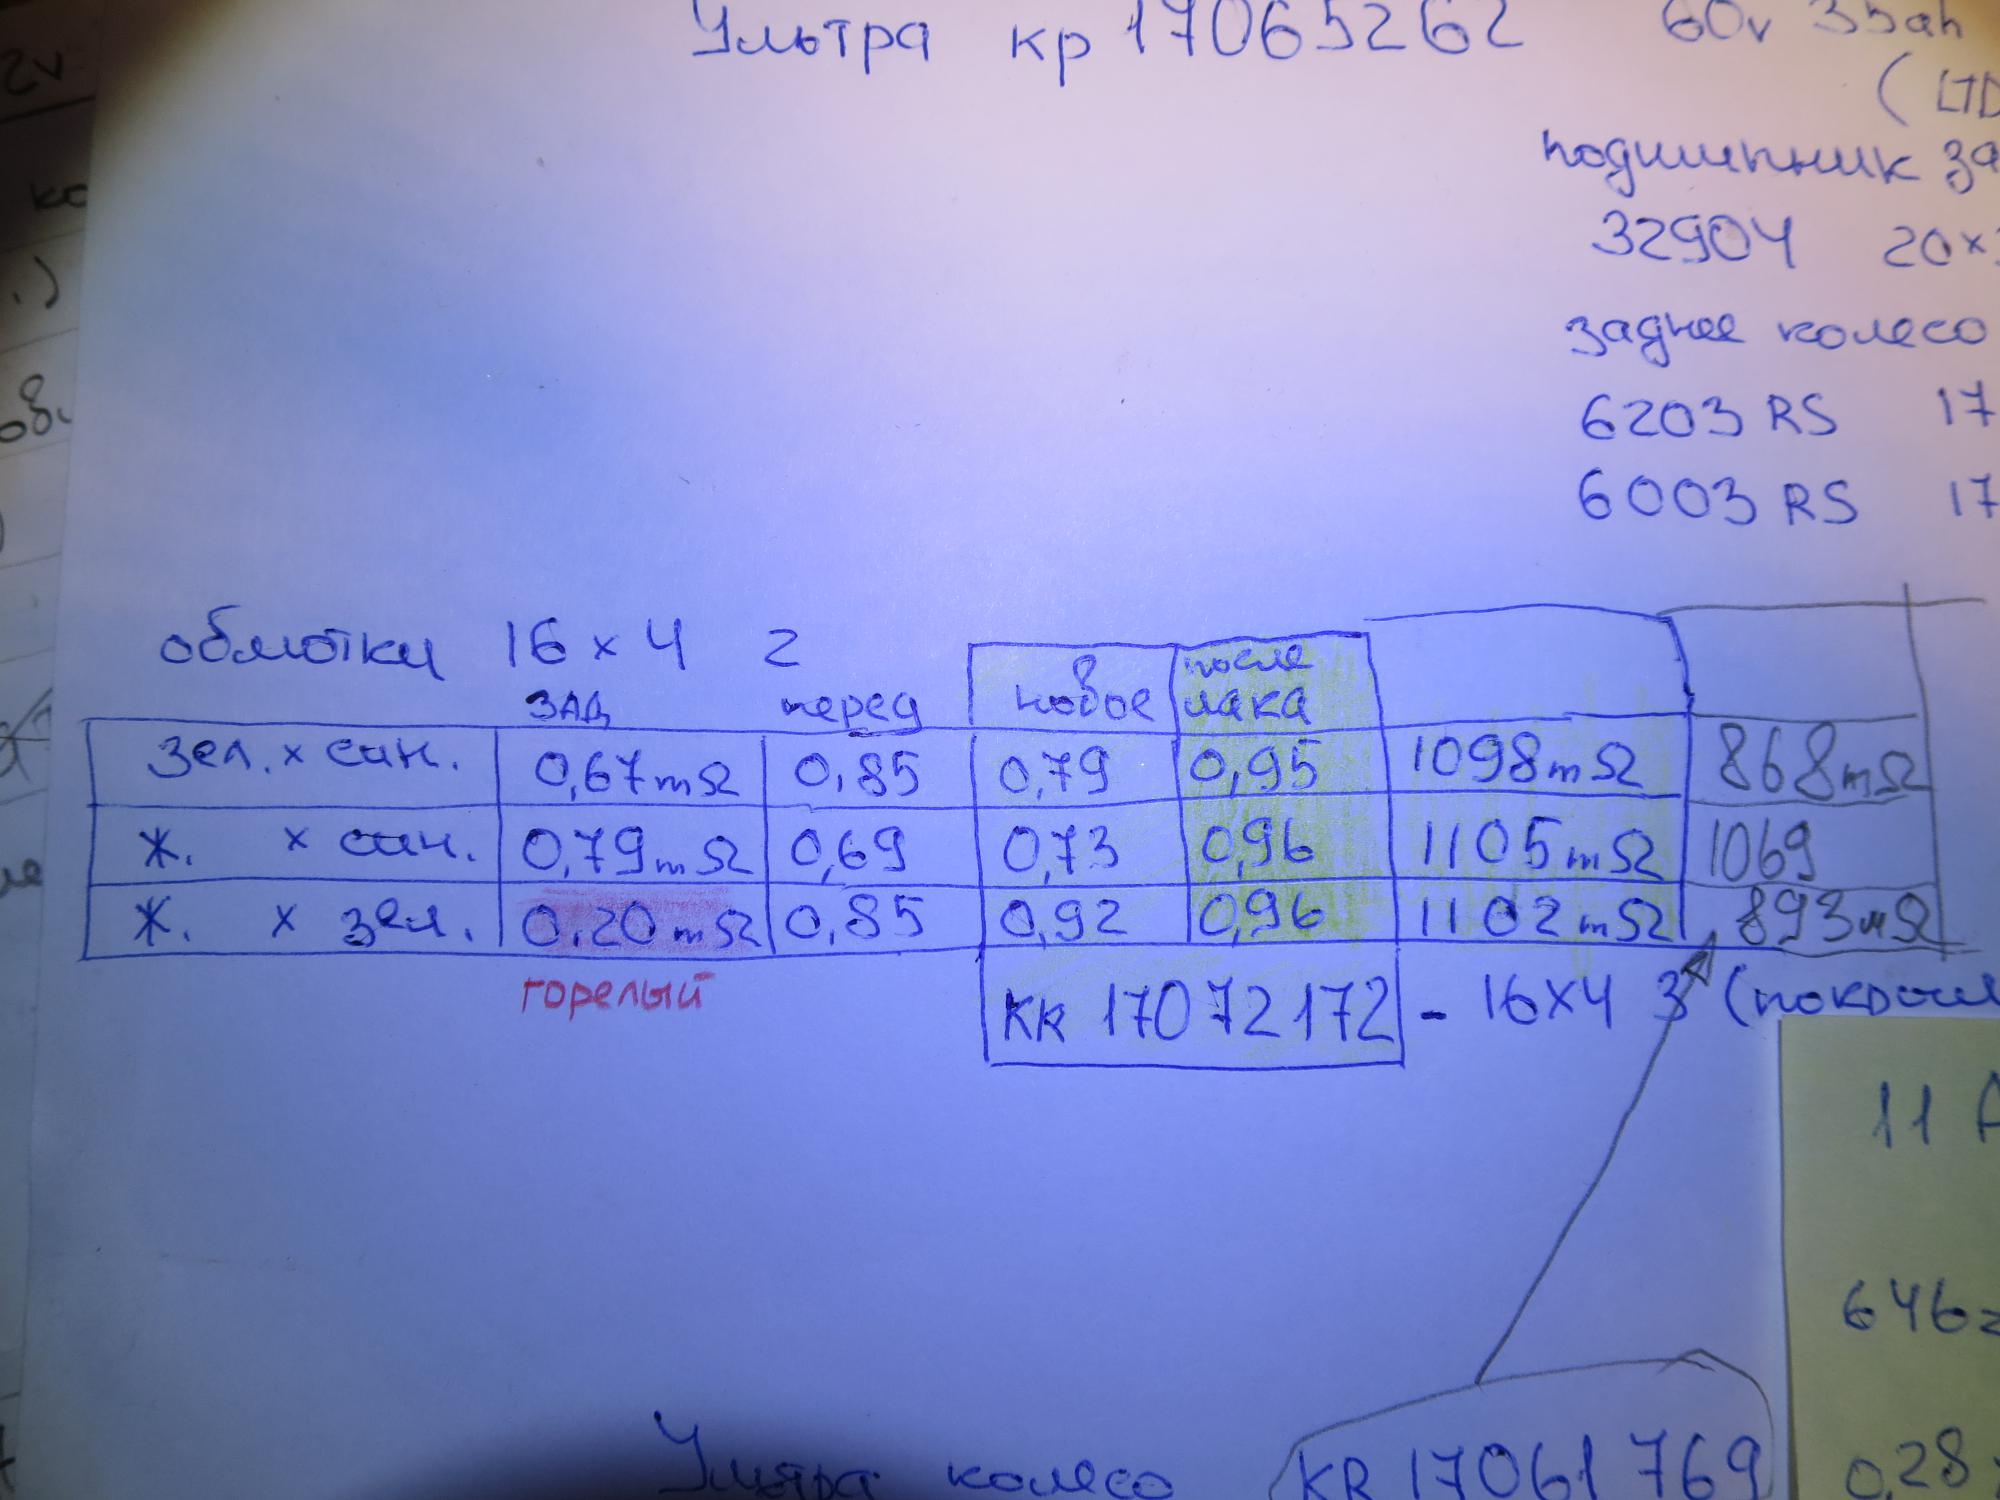 Ультра кр 17065262 60v 35ah
2v
(LTD
подшипник за
32904 20×
заднее колесо
6203 RS 17
6003 RS 17
обмотки 16 × 4 2
ЗАД перед новое после лака
Зел. × син. 0,67mΩ 0,85 0,79 0,95 1098mΩ 868mΩ
Ж. × син. 0,79mΩ 0,69 0,73 0,96 1105mΩ 1069
Ж. × зел. 0.20mΩ 0,85 0,92 0,96 1102mΩ 893мΩ
горелый
KR 17072172 - 16×4 3 (покрыш
11 A
646
Ультра колесо KR 17061769
0,28